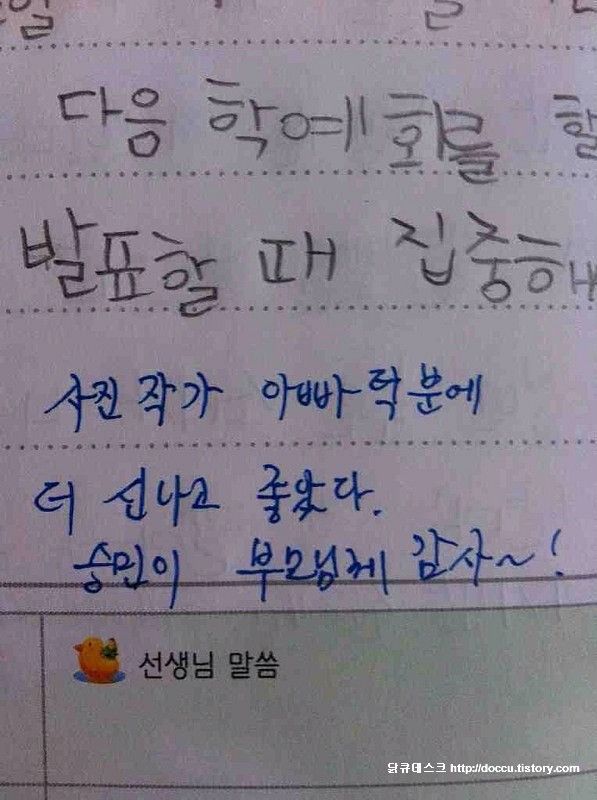 다음 학예회를 할
발표할 때 집중해
사진 작가 아빠 덕분에
더 신나고 좋았다.
승민이 부모님께 감사~!
선생님 말씀
달큐데스크 http://doccu.tistory.com